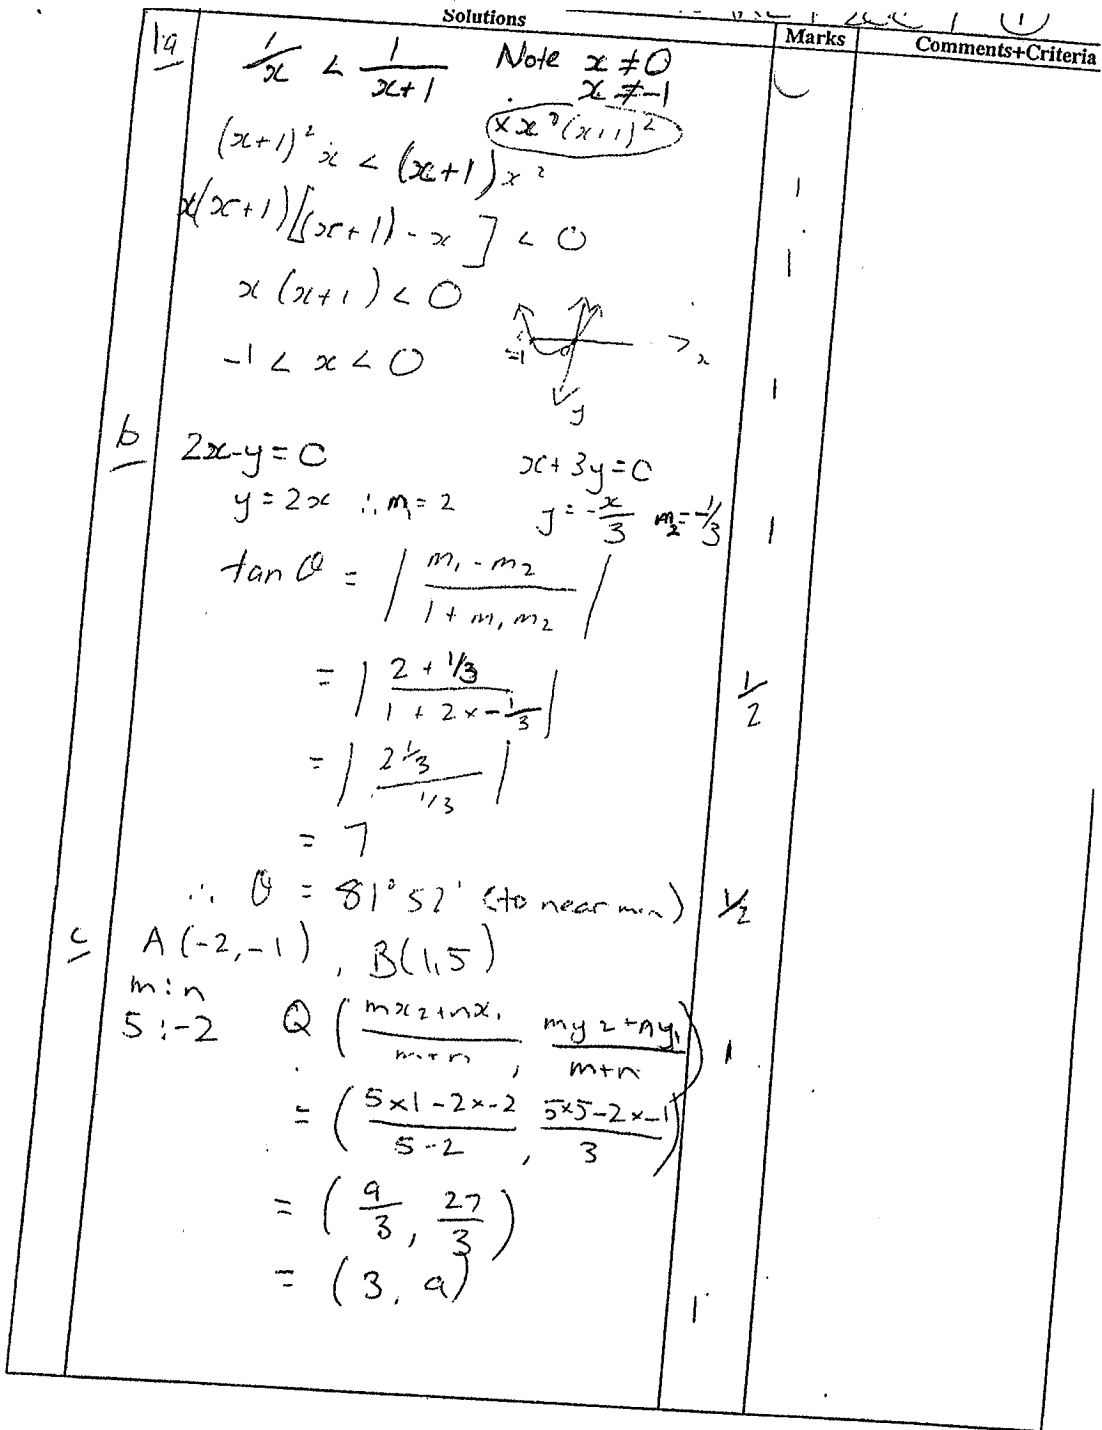 Solutions
Marks
Comments+Criteria
1a
1/x < 1/(x+1) Note x ≠ 0
x ≠ -1
(x+1)² x < (x+1)x² 1
x(x+1)[(x+1) - x] < 0 1
x(x+1) < 0
-1 0 x
-1 < x < 0 1
y
b
2x-y=0 x+3y=0
y = 2x ∴ m₁ = 2 y = -x/3 m₂ = -1/3 1
tan θ = | (m₁ - m₂)/(1 + m₁m₂) |
= | (2 + 1/3)/(1 + 2 × -1/3) | 1/2
= | (2 1/3)/(1/3) |
= 7
∴ θ = 81°52' (to near min) 1/2
c
A(-2,-1), B(1,5)
m:n
5:-2 Q ( (mx₂+nx₁)/(m+n), (my₂+ny₁)/(m+n) ) 1
= ( (5×1-2×-2)/(5-2), (5×5-2×-1)/3 )
= ( 9/3, 27/3 )
= (3, 9) 1